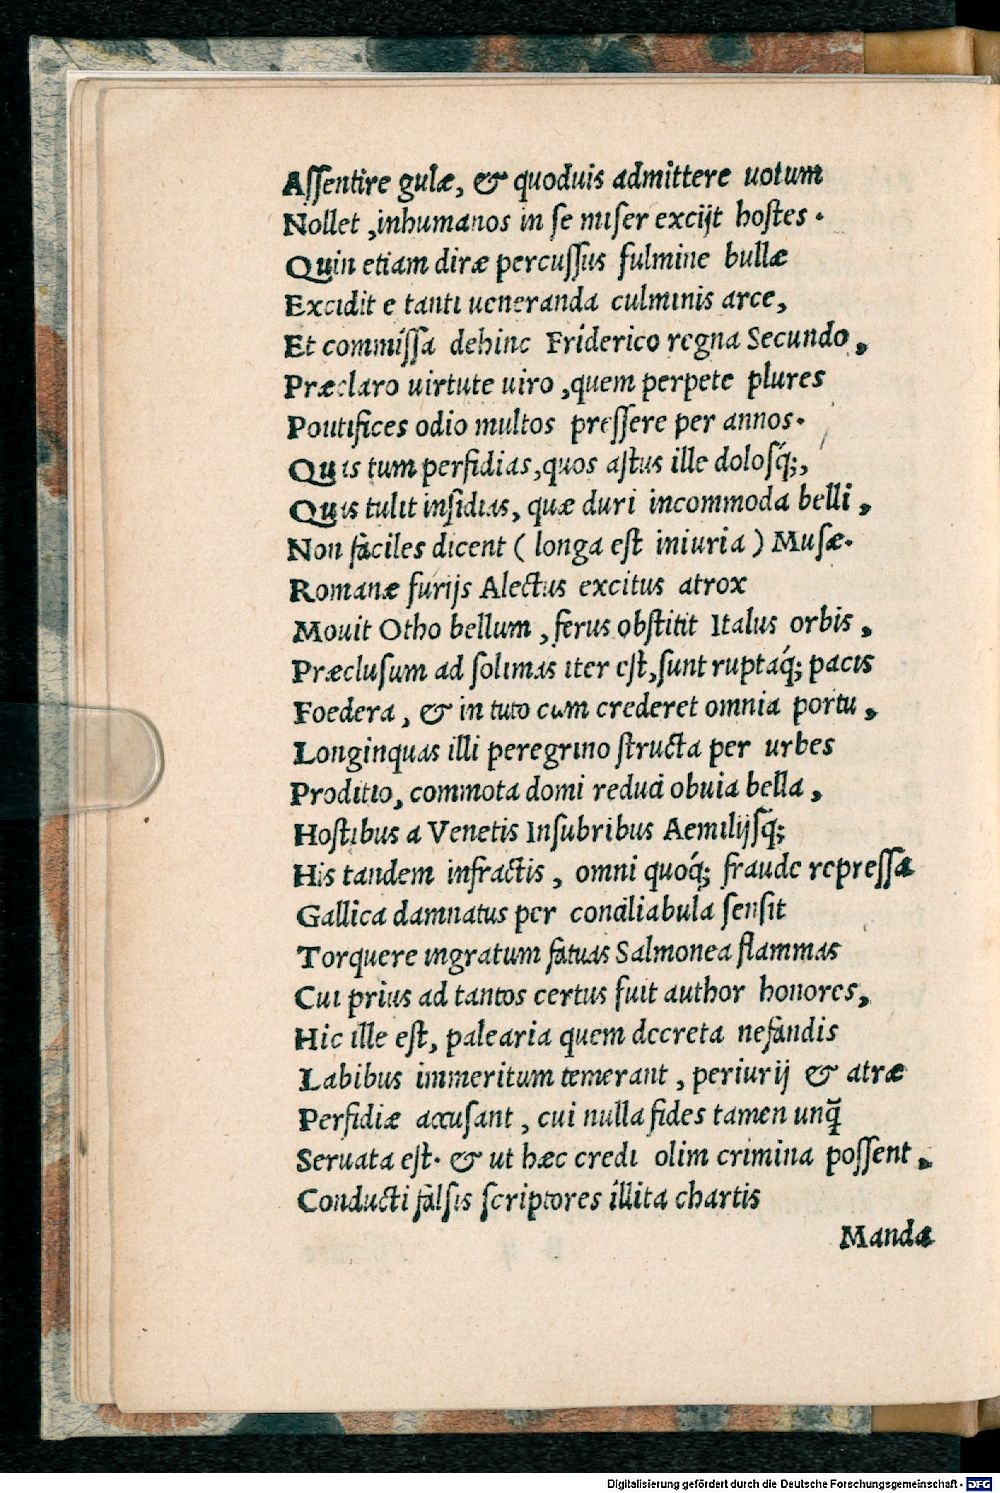 Aſſentire gulæ, & quoduis admittere uotum
Nollet ,inhumanos in ſe miſer excijt hoſtes.
Quin etiam diræ percuſſus fulmine bullæ
Excidit e tanti ueneranda culminis arce,
Et commiſſa dehinc Friderico regna Secundo,
Præclaro uirtute uiro ,quem perpete plures
Pontifices odio multos preſſere per annos.
Quis tum perfidias,quos aſtus ille doloſq́;,
Quis tulit inſidias, quæ duri incommoda belli,
Non faciles dicent ( longa eſt iniuria ) Muſæ.
Romanæ furijs Alectus excitus atrox
Mouit Otho bellum ,ferus obſtitit Italus orbis,
Præcluſum ad ſolimas iter eſt,ſunt ruptaq́; pacis
Foedera, & in tuto cum crederet omnia portu,
Longinquas illi peregrino ſtructa per urbes
Proditio, commota domi reduci obuia bella,
Hoſtibus a Venetis Inſubribus Aemilijſq́;
His tandem infractis, omni quoq́; fraude repreſſa
Gallica damnatus per conciliabula ſenſit
Torquere ingratum fatuas Salmonea flammas
Cui prius ad tantos certus fuit author honores,
Hic ille eſt, palearia quem decreta nefandis
Labibus immeritum temerant, periurij & atræ
Perfidiæ accuſant, cui nulla fides tamen unq̃
Seruata eſt. & ut hæc credi olim crimina poſſent,
Conducti falſis ſcriptores illita chartis
Mandæ
Digitalisierung gefördert durch die Deutsche Forschungsgemeinschaft - DFG